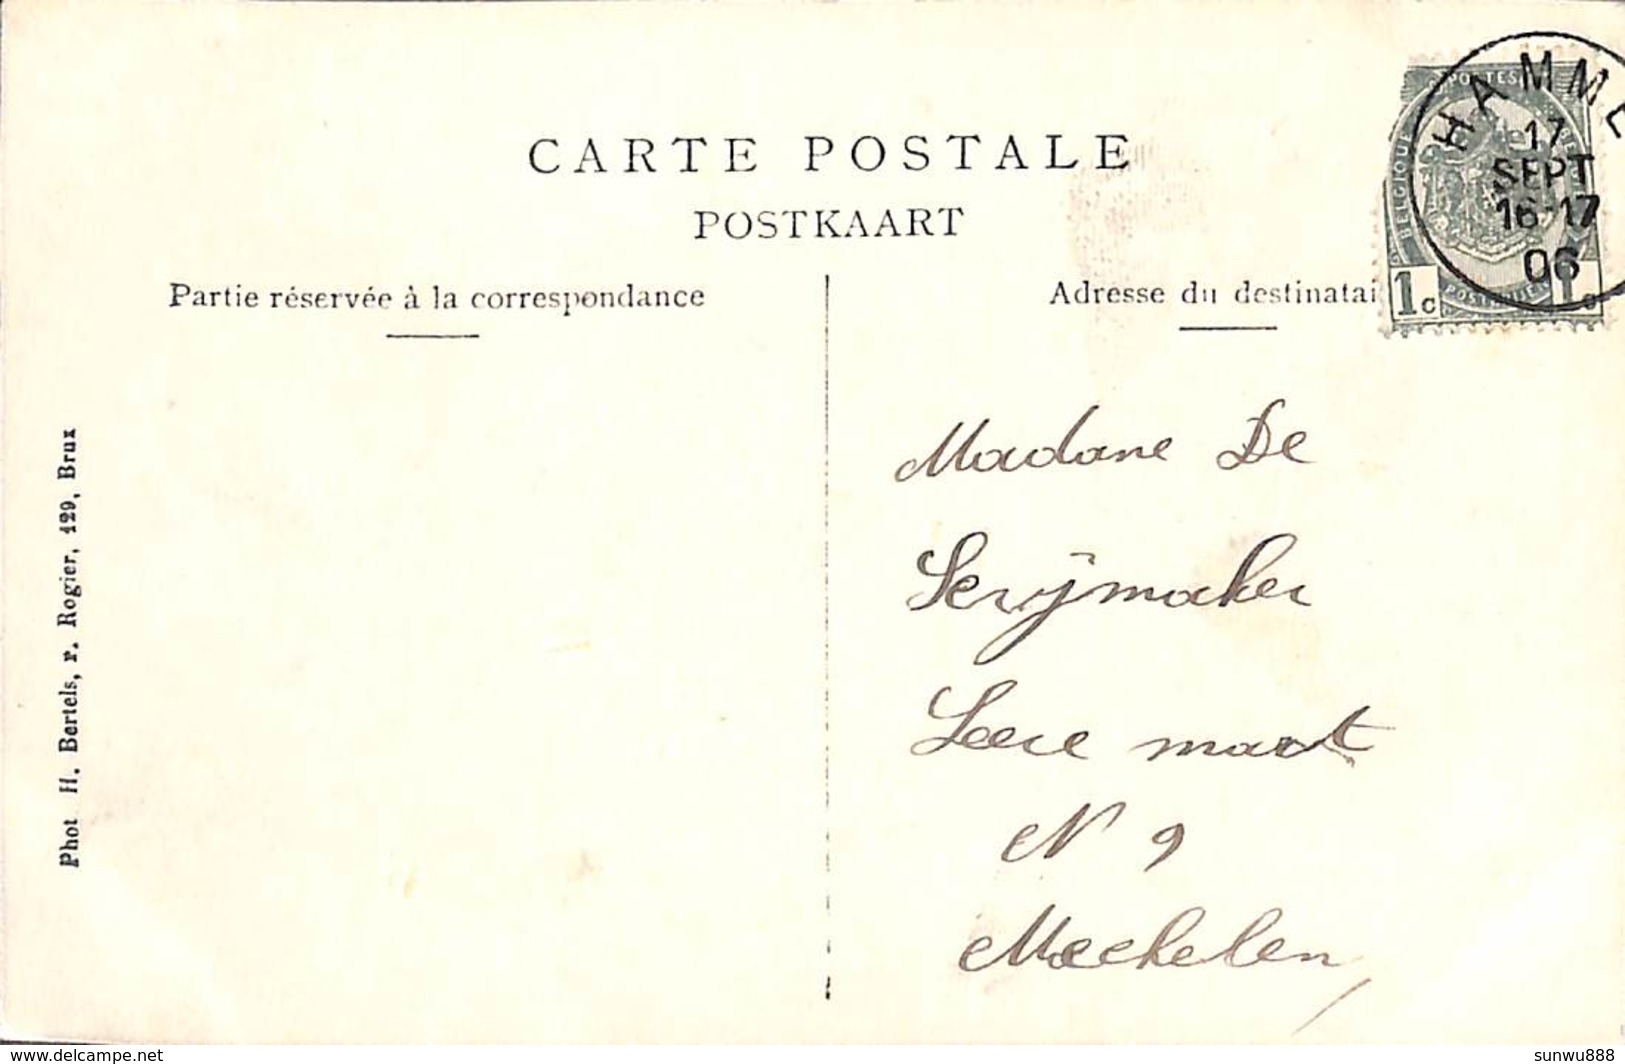 CARTE POSTALE
POSTKAART
Partie réservée à la correspondance
Adresse du destinatai
POSTES
BELGIQUE
1c
1c
HAMME
17
SEPT
16-17
06
Madame De
Serijmaker
Leere mart
N 9
Mechelen
Phot H. Bertels, r. Rogier, 129, Brux
www.delcampe.net
sunwu888